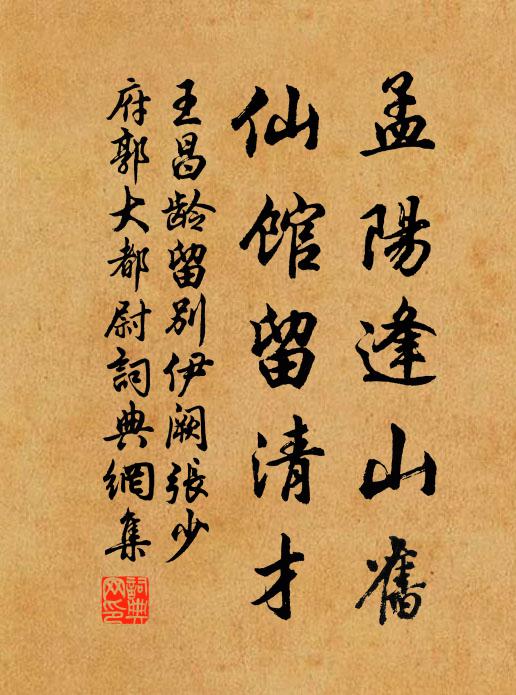 孟陽逢山舊
仙館留清才
王昌龄留别伊阙張少
府郭大都尉詞典網集
詞典网印